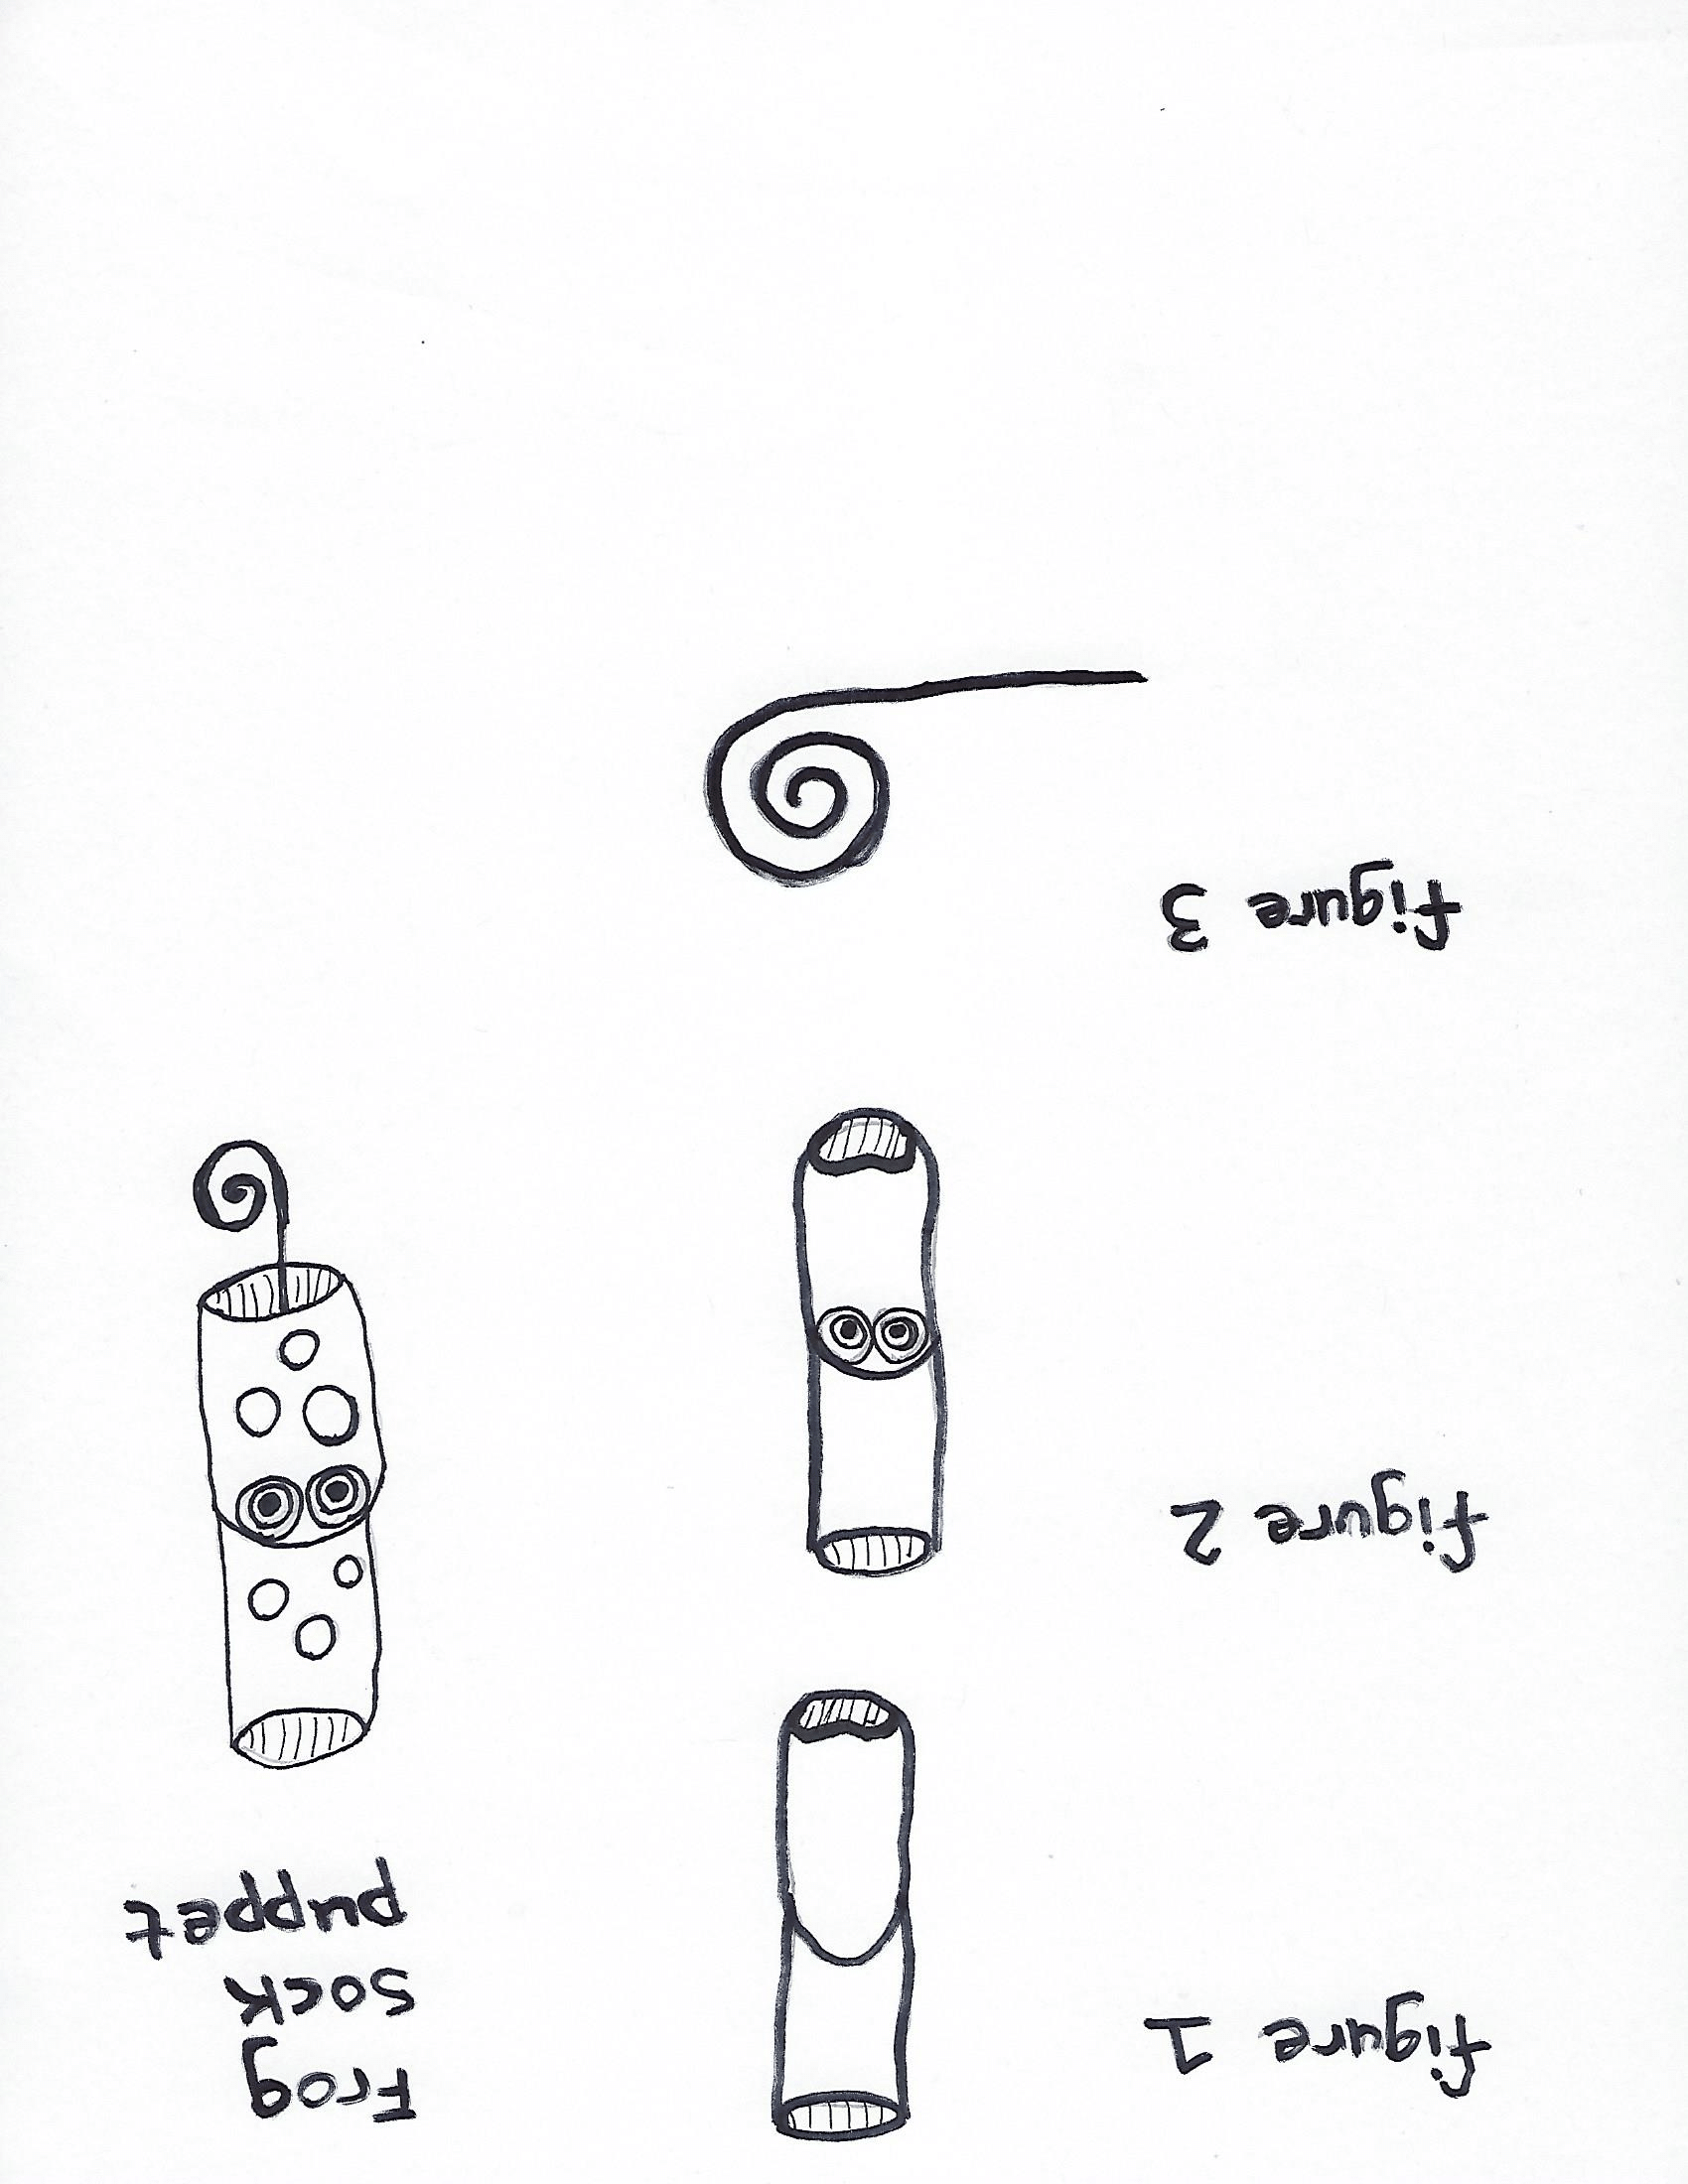 figure 1
figure 2
figure 3
Frog
sock
puppet